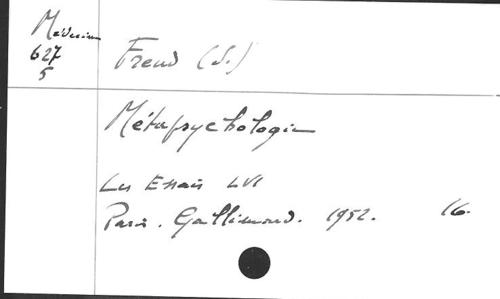 Médecine
627
5
Freud (S.)
Métapsychologie
Les Essais LVI
Paris. Gallimard. 1952. 16.